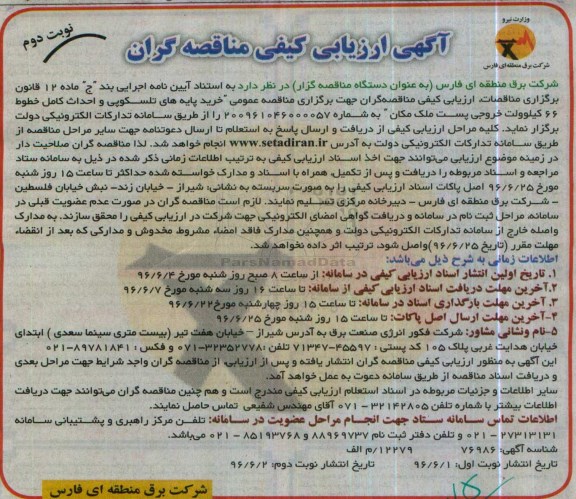 وزارت نیرو
شرکت برق منطقه‌ای فارس
نوبت دوم
آگهی ارزیابی کیفی مناقصه گران
شرکت برق منطقه ای فارس (به عنوان دستگاه مناقصه گزار) در نظر دارد به استناد آیین نامه اجرایی بند "ج" ماده ۱۲ قانون
برگزاری مناقصات، ارزیابی کیفی مناقصه‌گران جهت برگزاری مناقصه عمومی "خرید پایه های تلسکوپی و احداث کامل خطوط
۶۶ کیلوولت خروجی پست ملک مکان" به شماره ۲۰۰۹۶۱۰۴۶۰۰۰۰۵۷ را از طریق سامانه تدارکات الکترونیکی دولت
برگزار نماید. کلیه مراحل ارزیابی کیفی از دریافت و ارسال پاسخ به استعلام تا ارسال دعوتنامه جهت سایر مراحل مناقصه از
طریق سامانه تدارکات الکترونیکی دولت به آدرس www.setadiran.ir انجام خواهد شد. لذا مناقصه گران صلاحیت دار
در زمینه موضوع ارزیابی می‌توانند جهت اخذ اسناد ارزیابی کیفی به ترتیب اطلاعات زمانی ذکر شده در ذیل به سامانه ستاد
مراجعه و اسناد مربوطه را دریافت و پس از تکمیل، همراه با اسناد و مدارک خواسته شده حداکثر تا ساعت ۱۵ روز شنبه
مورخ ۹۶/۶/۲۵ اصل پاکات اسناد ارزیابی کیفی را به صورت سربسته به نشانی: شیراز - خیابان زند- نبش خیابان فلسطین
- شرکت برق منطقه ای فارس - دبیرخانه مرکزی تسلیم نمایند. لازم است مناقصه گران در صورت عدم عضویت قبلی در
سامانه، مراحل ثبت نام در سامانه و دریافت گواهی امضای الکترونیکی جهت شرکت در ارزیابی کیفی را محقق سازند. به مدارک
واصله خارج از سامانه تدارکات الکترونیکی دولت و همچنین مدارک فاقد امضاء مشروط مخدوش و مدارکی که بعد از انقضاء
مهلت مقرر (تاریخ ۹۶/۶/۲۵)واصل شود، ترتیب اثر داده نخواهد شد.
اطلاعات زمانی به شرح ذیل می‌باشد:
ParsNamadData
۱. تاریخ اولین انتشار اسناد ارزیابی کیفی در سامانه: از ساعت ۸ صبح روز شنبه مورخ ۹۶/۶/۴
۲.آخرین مهلت دریافت اسناد ارزیابی کیفی از سامانه: تا ساعت ۱۶ روز سه شنبه مورخ ۹۶/۶/۷
۳. آخرین مهلت بارگذاری اسناد در سامانه: تا ساعت ۱۵ روز چهارشنبه مورخ ۹۶/۶/۲۲
۴-آخرین مهلت ارسال اصل پاکات: تا ساعت ۱۵ روز شنبه مورخ ۹۶/۶/۲۵
۵-نام ونشانی مشاور: شرکت فکور انرژی صنعت برق به آدرس شیراز - خیابان هفت تیر (بیست متری سینما سعدی ) ابتدای
خیابان هدایت غربی پلاک ۱۰۵ کد پستی : ۴۵۵۹۷-۷۱۳۴۷ تلفن :۳۲۳۵۲۷۷۸-۰۷۱ و فکس : ۸۹۷۸۱۸۴۱-۰۲۱
این آگهی به منظور ارزیابی کیفی مناقصه گران انتشار یافته و پس از ارزیابی، از مناقصه گران واجد شرایط جهت مراحل بعدی
و دریافت اسناد مناقصه از طریق سامانه دعوت به عمل خواهد آمد.
سایر اطلاعات و جزئیات مربوطه در اسناد استعلام ارزیابی کیفی مندرج است و هم چنین مناقصه گران می‌توانند جهت دریافت
اطلاعات بیشتر با شماره تلفن ۳۲۱۴۲۸۰۵ - ۰۷۱ آقای مهندس شفیعی تماس حاصل نمایند.
اطلاعات تماس سامانه ستاد جهت انجام مراحل عضویت در سامانه: تلفن مرکز راهبری و پشتیبانی سامانه
۲۷۳۱۳۱۳۱ - ۰۲۱ و تلفن دفتر ثبت نام ۸۸۹۶۹۷۳۷ و ۸۵۱۹۳۷۶۸ - ۰۲۱ می‌باشد.
شناسه آگهی: ۷۶۹۸۶ ۱۲۲۷۹/م الف
تاریخ انتشار نوبت اول: ۹۶/۶/۱ تاریخ انتشار نوبت دوم: ۹۶/۶/۲
شرکت برق منطقه ای فارس